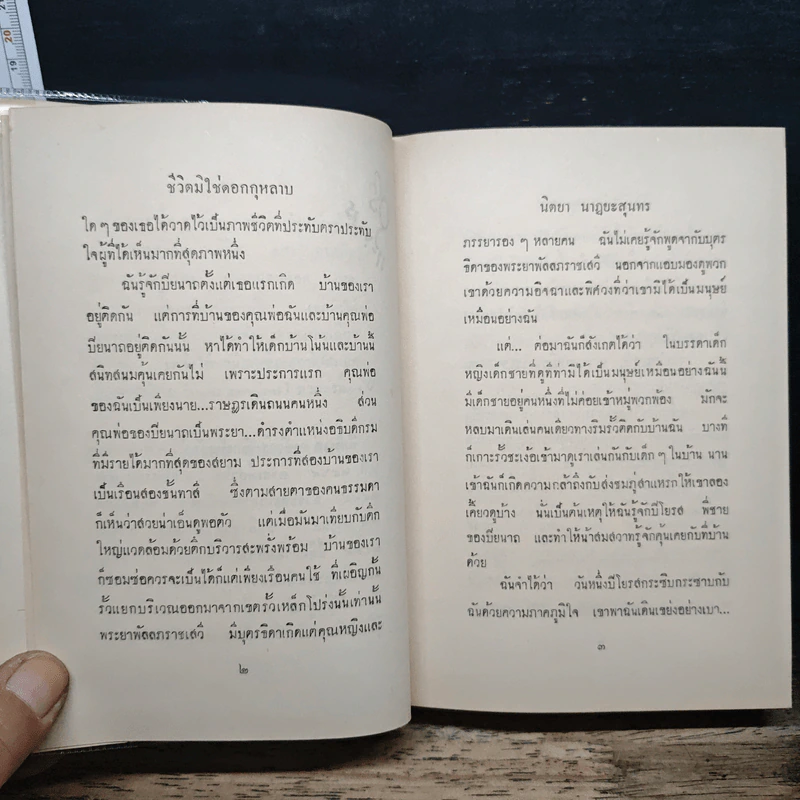 ชีวิตมิใช่ดอกกุหลาบ
ใด ๆ ของเธอได้วาดไว้เป็นภาพชีวิตที่ประทับตราประทับ
ใจผู้ที่ได้เห็นมากที่สุดภาพหนึ่ง
ฉันรู้จักปิยนาถตั้งแต่เธอแรกเกิด บ้านของเรา
อยู่ติดกัน แต่การที่บ้านของคุณพ่อฉันและบ้านคุณพ่อ
ปิยนาถอยู่ติดกันนั้น หาได้ทำให้เด็กบ้านโน้นและบ้านนี้
สนิทสนมคุ้นเคยกันไม่ เพราะประการแรก คุณพ่อ
ของฉันเป็นเพียงนาย...ราษฎรเดินถนนคนหนึ่ง ส่วน
คุณพ่อของปิยนาถเป็นพระยา...ดำรงตำแหน่งอธิบดีกรม
ที่มีรายได้มากที่สุดของสยาม ประการที่สองบ้านของเรา
เป็นเรือนสองชั้นทาสี ซึ่งตามสายตาของคนธรรมดา
ก็เห็นว่าสวยน่าเอ็นดูพอตัว แต่เมื่อมันมาเทียบกับตึก
ใหญ่แวดล้อมด้วยตึกบริวารสะพรั่งพร้อม บ้านของเรา
ก็ซอมซ่อควรจะเป็นได้ก็แต่เพียงเรือนคนใช้ ที่เผอิญกั้น
รั้วแยกบริเวณออกมาจากเขตรั้วเหล็กโปร่งนั้นเท่านั้น
พระยาพัลลภราชเสวี มีบุตรธิดาเกิดแต่คุณหญิงและ
๒
19
20
21
นิตยา นาฏยะสุนทร
ภรรยารอง ๆ หลายคน ฉันไม่เคยรู้จักพูดจากับบุตร
ธิดาของพระยาพัลลภราชเสวี นอกจากแอบมองดูพวก
เขาด้วยความอิจฉาและพิศวงที่ว่าเขามิได้เป็นมนุษย์
เหมือนอย่างฉัน
แต่... ต่อมาฉันก็สังเกตได้ว่า ในบรรดาเด็ก
หญิงเด็กชายที่ดูที่ท่ามิได้เป็นมนุษย์เหมือนอย่างฉันนี้
มีเด็กชายอยู่คนหนึ่งที่ไม่ค่อยเข้าหมู่พวกพ้อง มักจะ
หลบมาเดินเล่นคนเดียวทางริมรั้วติดกับบ้านฉัน บางที
ก็เกาะรั้วชะเง้อเข้ามาดูเราเล่นกันกับเด็ก ๆ ในบ้าน นาน
เข้าฉันก็เกิดความกล้าถึงกับส่งชมภู่สาแหรกให้เขาลอง
เคี้ยวดูบ้าง นั่นเป็นต้นเหตุให้ฉันรู้จักปิโยรส พี่ชาย
ของปิยนาถ และทำให้น้าสมสวาทรู้จักคุ้นเคยกับที่บ้าน
ด้วย
ฉันจำได้ว่า วันหนึ่งปิโยรสกระซิบกระซาบกับ
ฉันด้วยความภาคภูมิใจ เขาพาฉันเดินเขย่งอย่างเบา...
๓